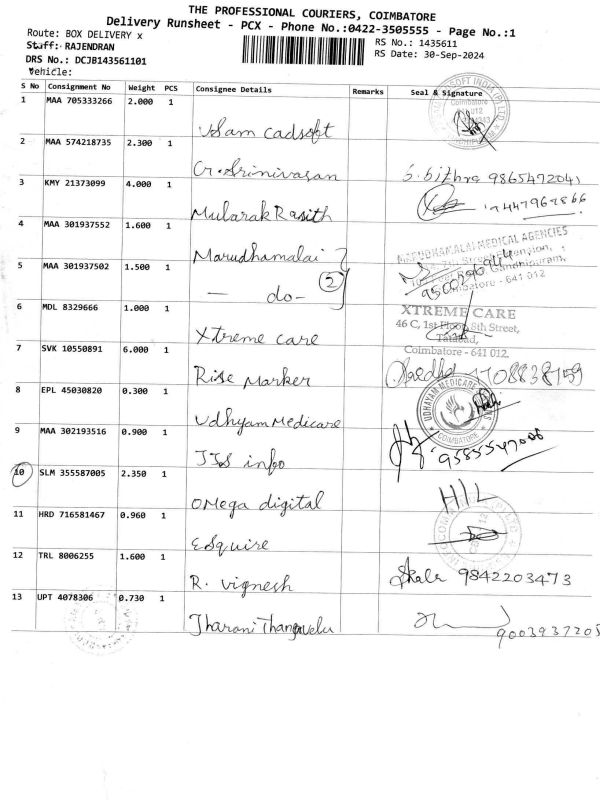 THE PROFESSIONAL COURIERS, COIMBATORE
Delivery Runsheet - PCX - Phone No.:0422-3505555 - Page No.:1
Route: BOX DELIVERY x
RS No.: 1435611
Staff: RAJENDRAN
RS Date: 30-Sep-2024
DRS No.: DCJB143561101
Vehicle:
S No Consignment No Weight PCS Consignee Details Remarks Seal & Signature
1 MAA 705333266 2.000 1
Coimbatore
Vsam cadsoft
2 MAA 574218735 2.300 1
Cr. Srinivasan S. Sithra 9865472041
3 KMY 21373099 4.000 1
Mubarak Rasith 9447962866
4 MAA 301937552 1.600 1
Marudhamalai
MARUDHAMALAI MEDICAL AGENCIES
5 MAA 301937502 1.500 1
Gandhipuram,
Coimbatore - 641 012
— do — 2
6 MDL 8329666 1.000 1
XTREME CARE
46 C, 1st Floor, 8th Street,
Tatabad,
Xtreme care
7 SVK 10550891 6.000 1
Coimbatore - 641 012.
Rise Marker
8 EPL 45030820 0.300 1
UDHYAM MEDICARE
COIMBATORE
Udhyam Medicare
9 MAA 302193516 0.900 1
JJS info
10 SLM 355587005 2.350 1
OMega digital HIL
11 HRD 716581467 0.960 1
Esquire
12 TRL 8006255 1.600 1
R. vignesh Skala 9842203473
13 UPT 4078306 0.730 1
Tharani Thangavelu 9003937205